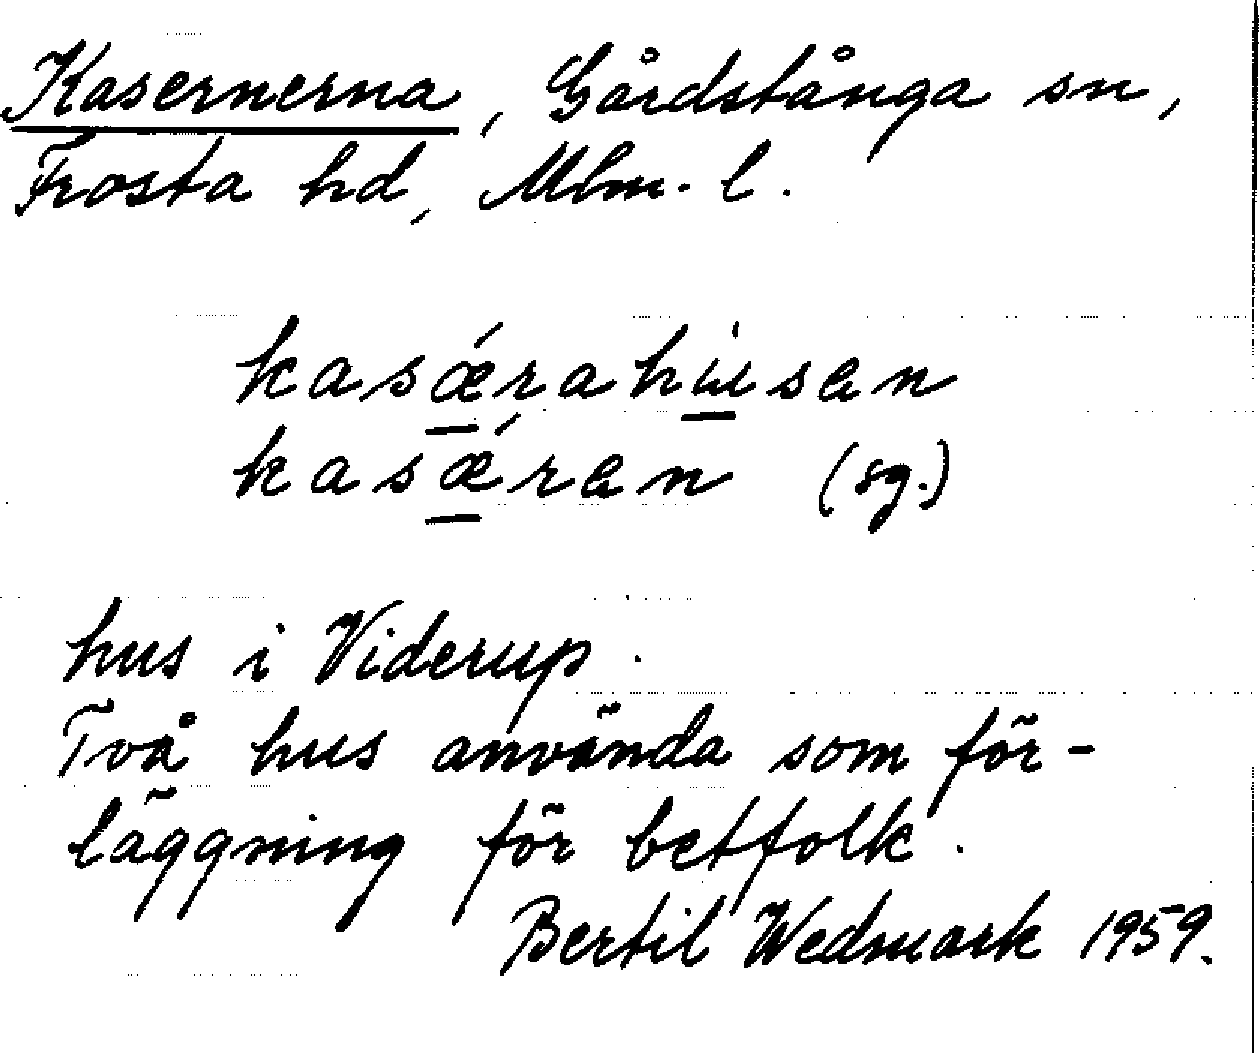 Kasernerna, Gårdstånga sn,
Frosta hd, Mlm. l.
kasǽrahusen
kasǽren (sg.)
hus i Viderup.
Två hus använda som för-
läggning för betfolk.
Bertil Wedmark 1959.